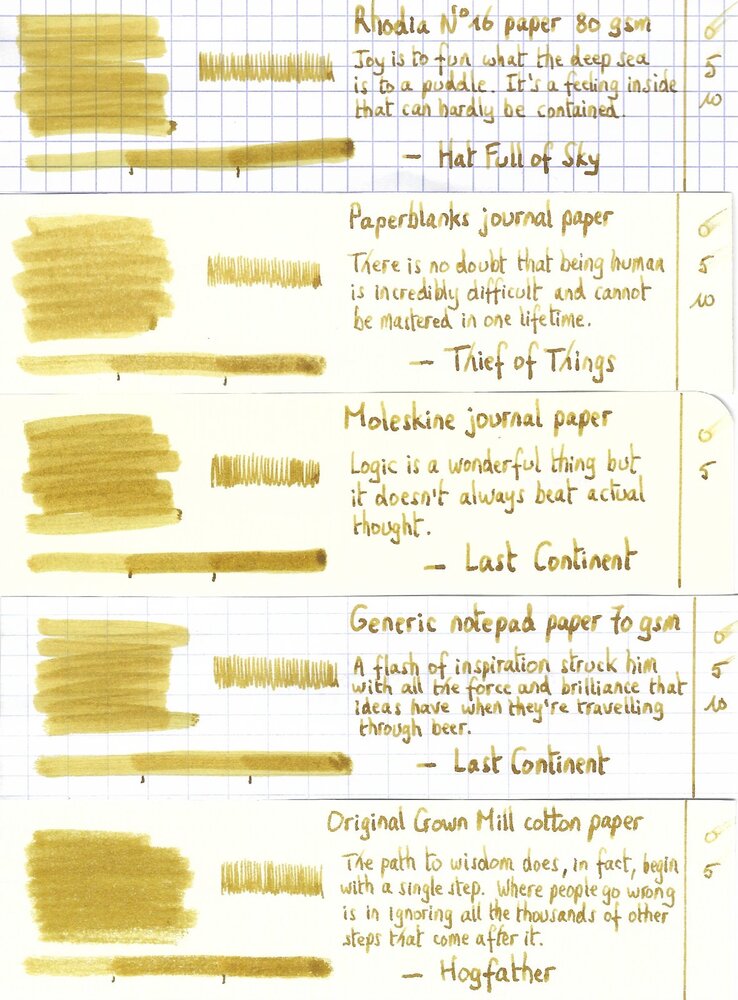 Rhodia N°16 paper 80 gsm
Joy is to fun what the deep sea
is to a puddle. It's a feeling inside
that can hardly be contained.
— Hat Full of Sky
0
5
10
Paperblanks journal paper
There is no doubt that being human
is incredibly difficult and cannot
be mastered in one lifetime.
— Thief of Things
0
5
10
Moleskine journal paper
Logic is a wonderful thing but
it doesn't always beat actual
thought.
— Last Continent
0
5
Generic notepad paper 70 gsm
A flash of inspiration struck him
with all the force and brilliance that
ideas have when they're travelling
through beer.
— Last Continent
0
5
10
Original Crown Mill cotton paper
The path to wisdom does, in fact, begin
with a single step. Where people go wrong
is in ignoring all the thousands of other
steps that come after it.
— Hogfather
0
5